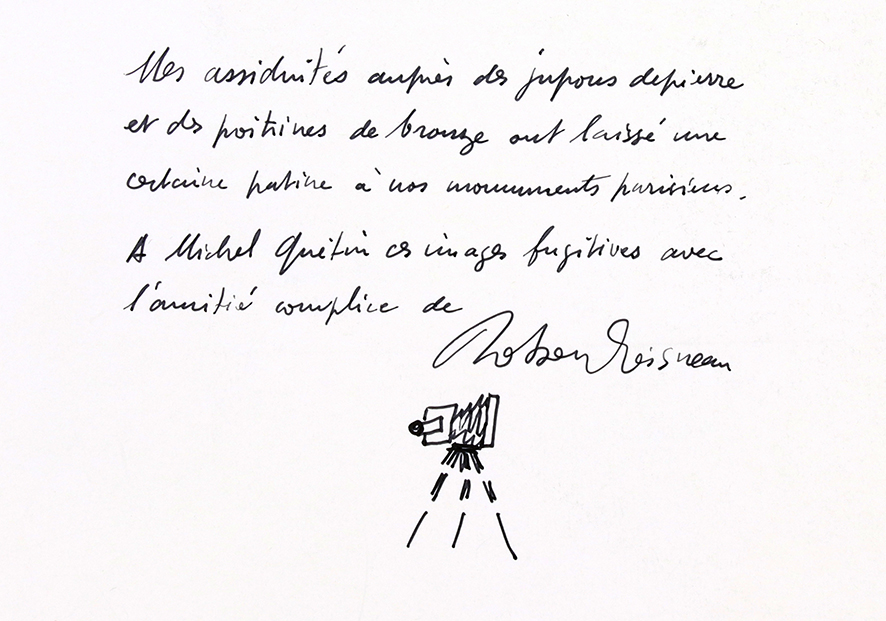 Mes assiduités auprès des jupons de pierre
et des poitrines de bronze ont laissé une
certaine patine à nos monuments parisiens.
A Michel Quétin ces images fugitives avec
l'amitié complice de
Robert Doisneau